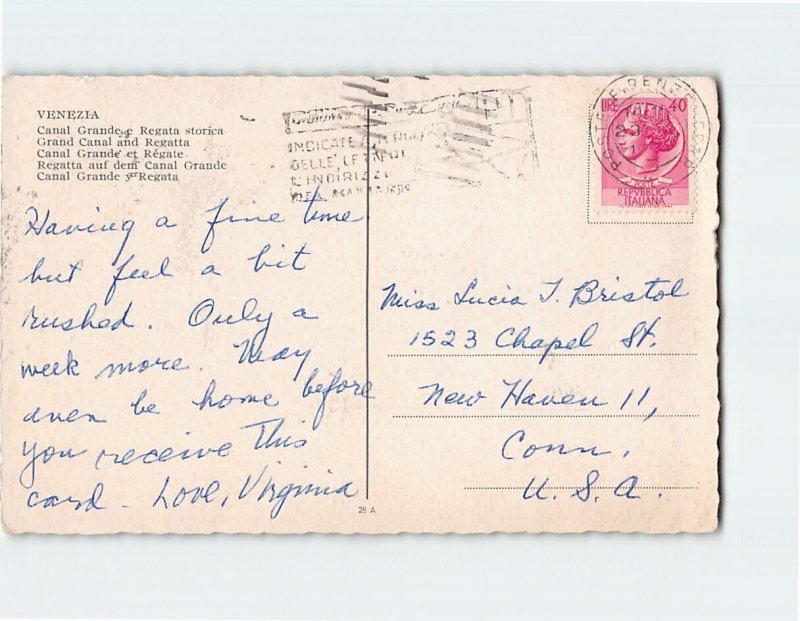 VENEZIA
Canal Grande e Regata storica
Grand Canal and Regatta
Canal Grande et Régate
Regatta auf dem Canal Grande
Canal Grande y Regata
Having a fine time
but feel a bit
rushed. Only a
week more. May
even be home before
you receive this
card. Love, Virginia
28 A
INDICATE
L'INDIRIZZO
POSTE
LIRE 40
REPVBBLICA
ITALIANA
Miss Lucia T. Bristol
1523 Chapel St.
New Haven 11,
Conn.
U. S. A.